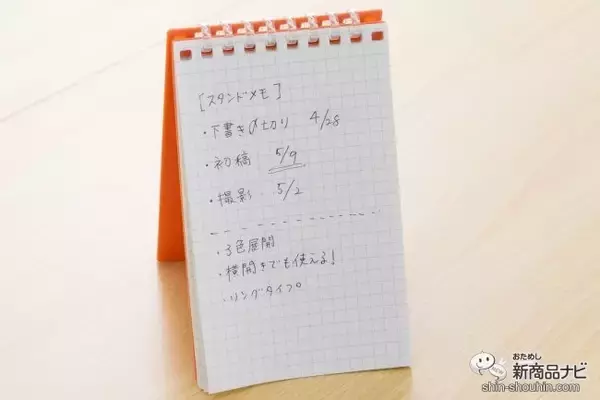 [スタンドメモ]
・下書き〆切り 4/28
・初稿 5/9
・撮影 5/2
・3色展開
・横開きでも使える!
・リングタイプ
おためし
新商品ナビ
shin-shouhin.com